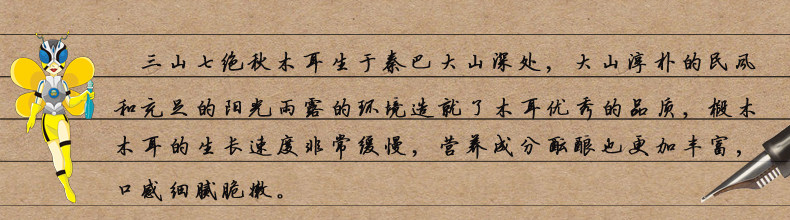 三山七绝秋木耳生于秦巴大山深处，大山淳朴的民风
和充足的阳光雨露的环境造就了木耳优秀的品质，椴木
木耳的生长速度非常缓慢，营养成分酝酿也更加丰富，
口感细腻脆嫩。